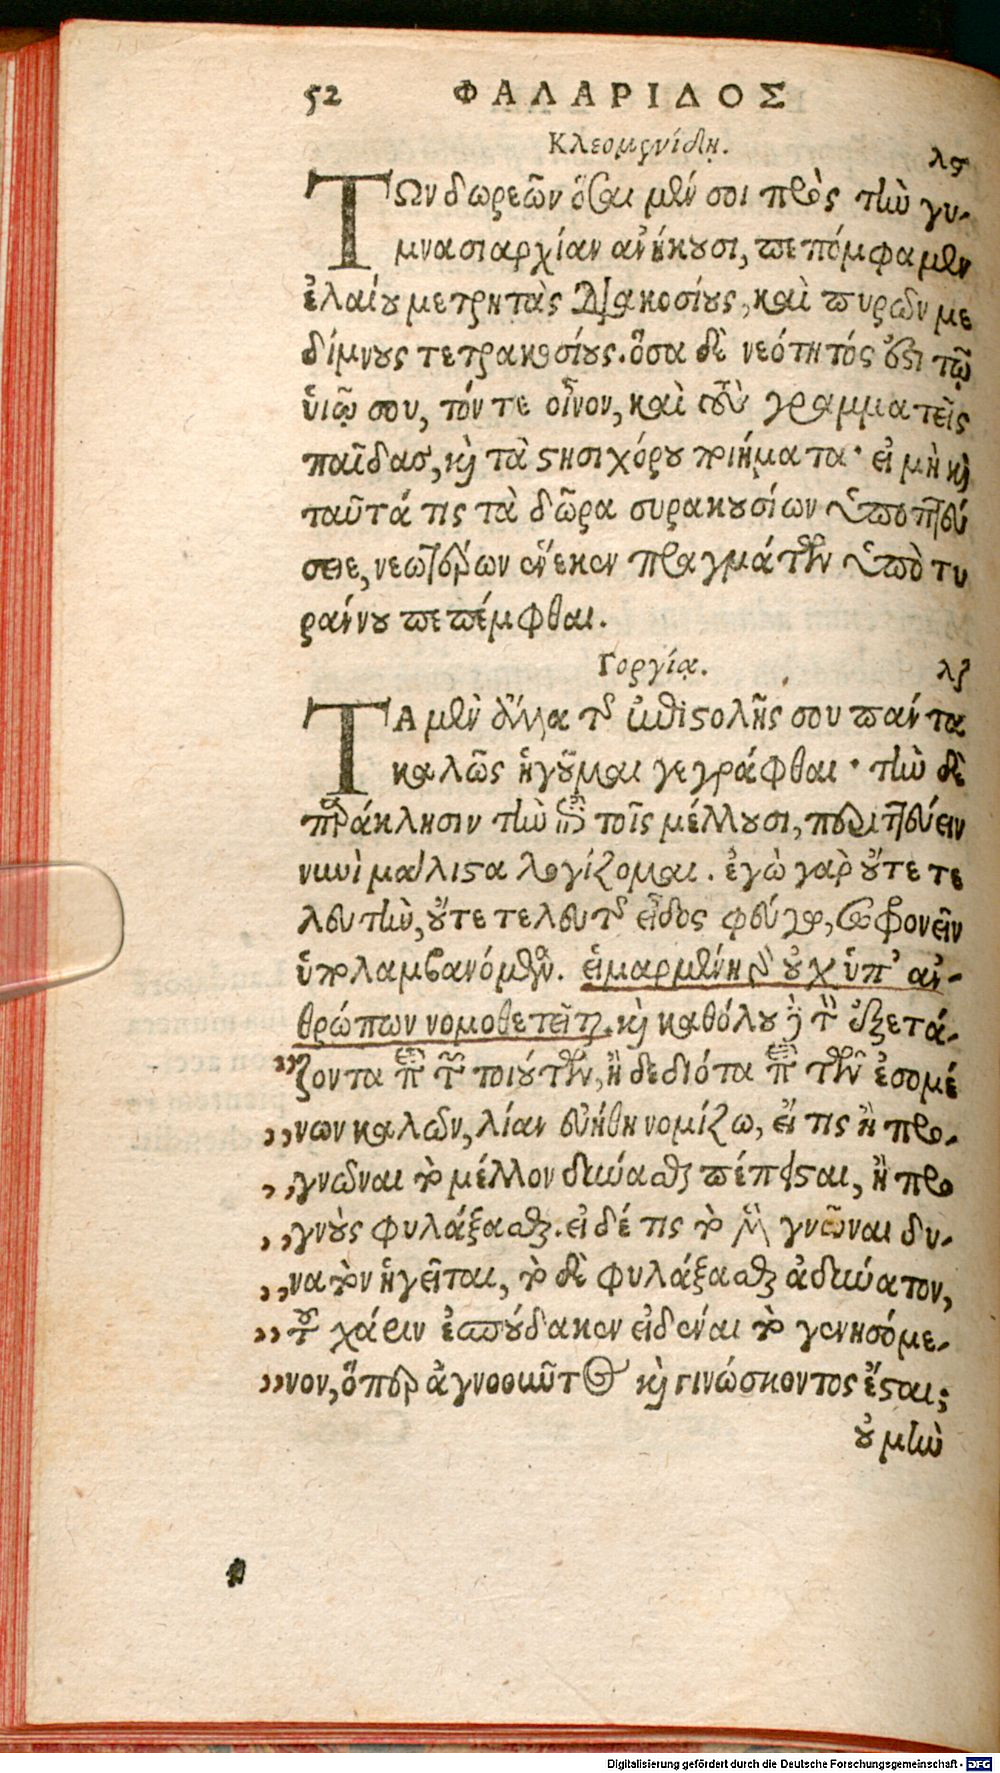 52 ΦΑΛΑΡΙΔΟΣ
Κλεομενίδῃ. λϛ
ΤΩν δωρεῶν ὅσαι μέν σοι πρὸς τὴν γυ-
μνασιαρχίαν ἀνήκουσι, πεπόμφαμεν
ἐλαίου μετρητὰς διακοσίους, καὶ πυρῶν με
δίμνους τετρακοσίους. ὅσα δὲ νεότητός ἐστι τῷ
ὑιῷ σου, τόν τε οἶνον, καὶ τοὺς γραμματεῖς
παῖδας, καὶ τὰ στησιχόρου ποιήματα· εἰ μὴ καὶ
ταῦτά τις τὰ δῶρα συρακουσίων ὑποπτεύ
σεθε, νεωτέρων ἕνεκεν πραγμάτων ὑπὸ τυ
ράννου πεπέμφθαι.
Γοργίᾳ. λζ
ΤΑ μὲν ἄλλα τῆς ἐπιστολῆς σου πάντα
καλῶς ἡγοῦμαι γεγράφθαι· τὴν δὲ
παράκλησιν τὴν ἐπὶ τοῖς μέλλουσι, περιττεύειν
νυνὶ μάλιστα λογίζομαι. ἐγὼ γὰρ οὔτε τε
λευτὴν, οὔτε τελευτῆς εἶδος φεύγω, σωφρονεῖν
ὑπολαμβανόμενον. εἱμαρμένη γὰρ οὐχ ὑπ’ ἀν-
θρώπων νομοθετεῖται. καὶ καθόλου δὲ τὸν ἐξετά-
ζοντα περὶ τῶν τοιούτων, ἢ δεδιότα περὶ τῶν ἐσομέ
νων καλῶν, λίαν εὐήθη νομίζω, εἴ τις ἢ προ-
γνῶναι τὸ μέλλον δύνασθαι πέπεισται, ἢ προ
γνοὺς φυλάξασθαι. εἰ δέ τις τὸ μὲν γνῶναι δυ-
νατὸν ἡγεῖται, τὸ δὲ φυλάξασθαι ἀδύνατον,
τοῦ χάριν ἐσπούδακεν εἰδέναι τὸ γενησόμε-
νον, ὅπερ ἀγνοοῦντος καὶ γινώσκοντος ἔσται;
οὐ μὴν
Digitalisierung gefördert durch die Deutsche Forschungsgemeinschaft - DFG